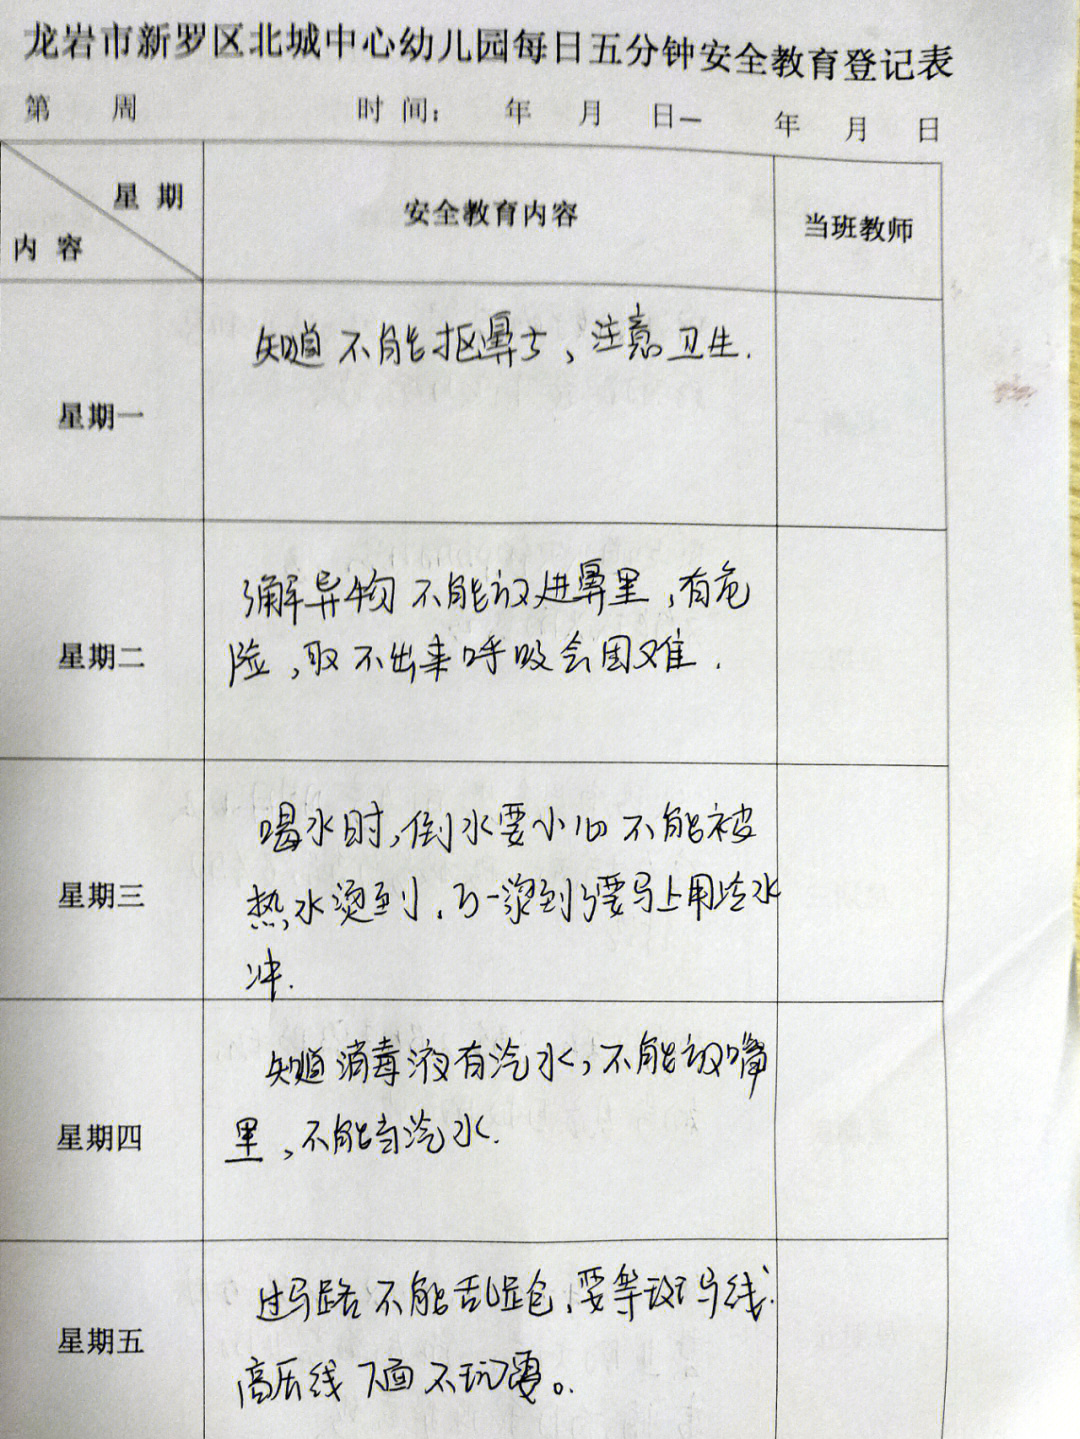 龙岩市新罗区北城中心幼儿园每日五分钟安全教育登记表
第 周 时 间： 年 月 日— 年 月 日
星 期
内 容
安全教育内容
当班教师
星期一
知道不能抠鼻子、注意卫生.
星期二
了解异物不能放进鼻里,有危
险,取不出来呼吸会困难.
星期三
喝水时,倒水要小心不能被
热水烫到.万一烫到要马上用冷水
冲.
星期四
知道消毒液有汽水,不能放嘴
里,不能当汽水.
星期五
过马路不能乱跑,要等斑马线.
高压线下面不玩耍。